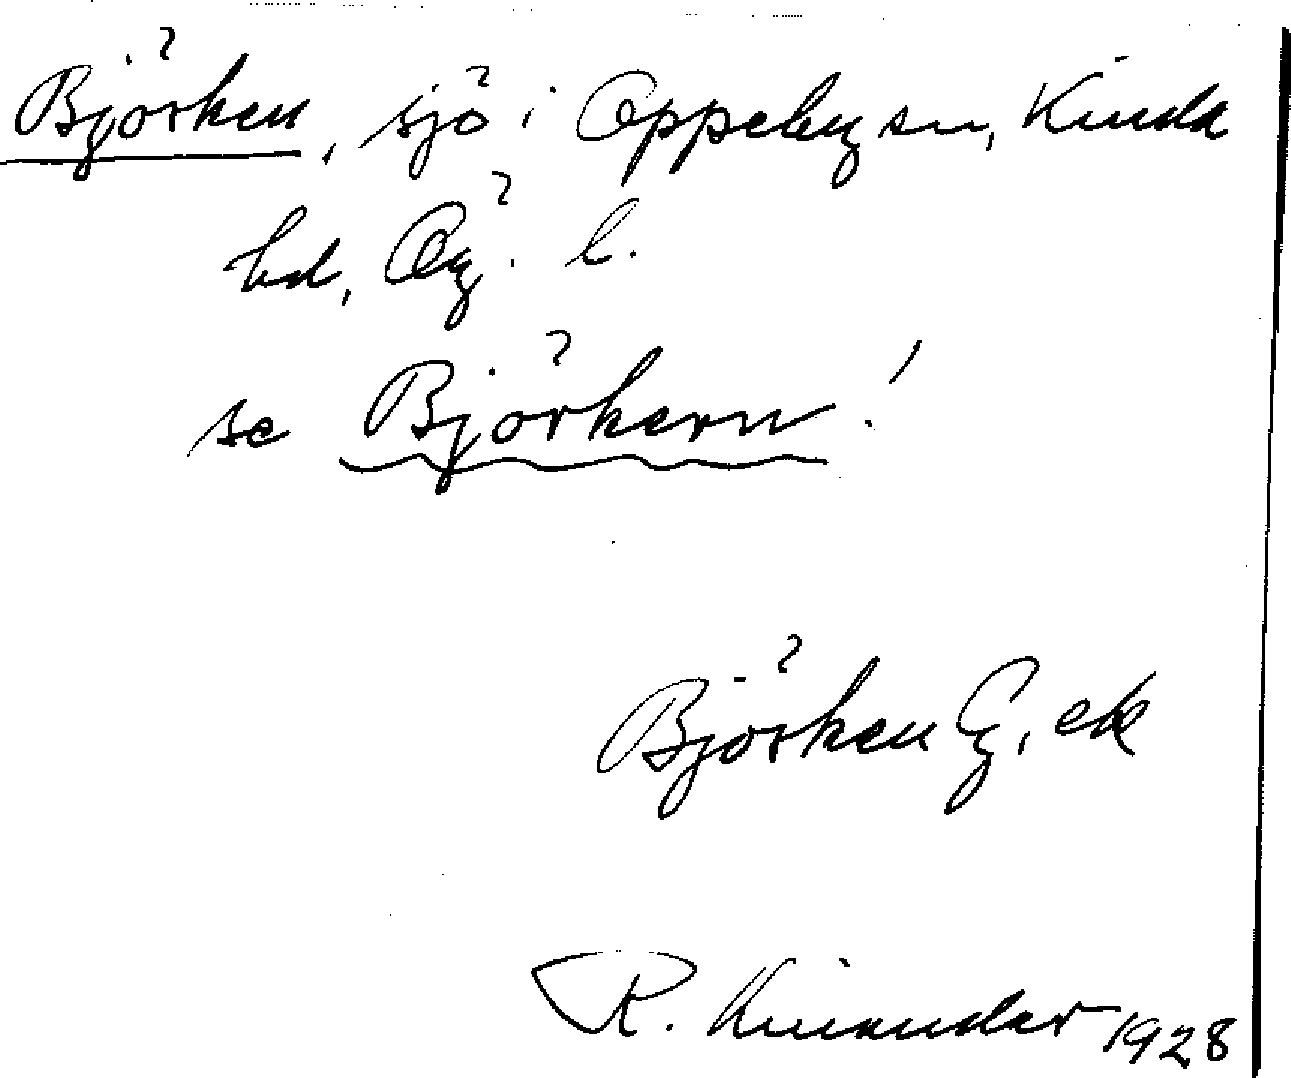 Björken, sjö i Oppeby sn, Kinda
hd, Ög. l.
se Björkern!
Björken G, ek
R. Kinander 1928